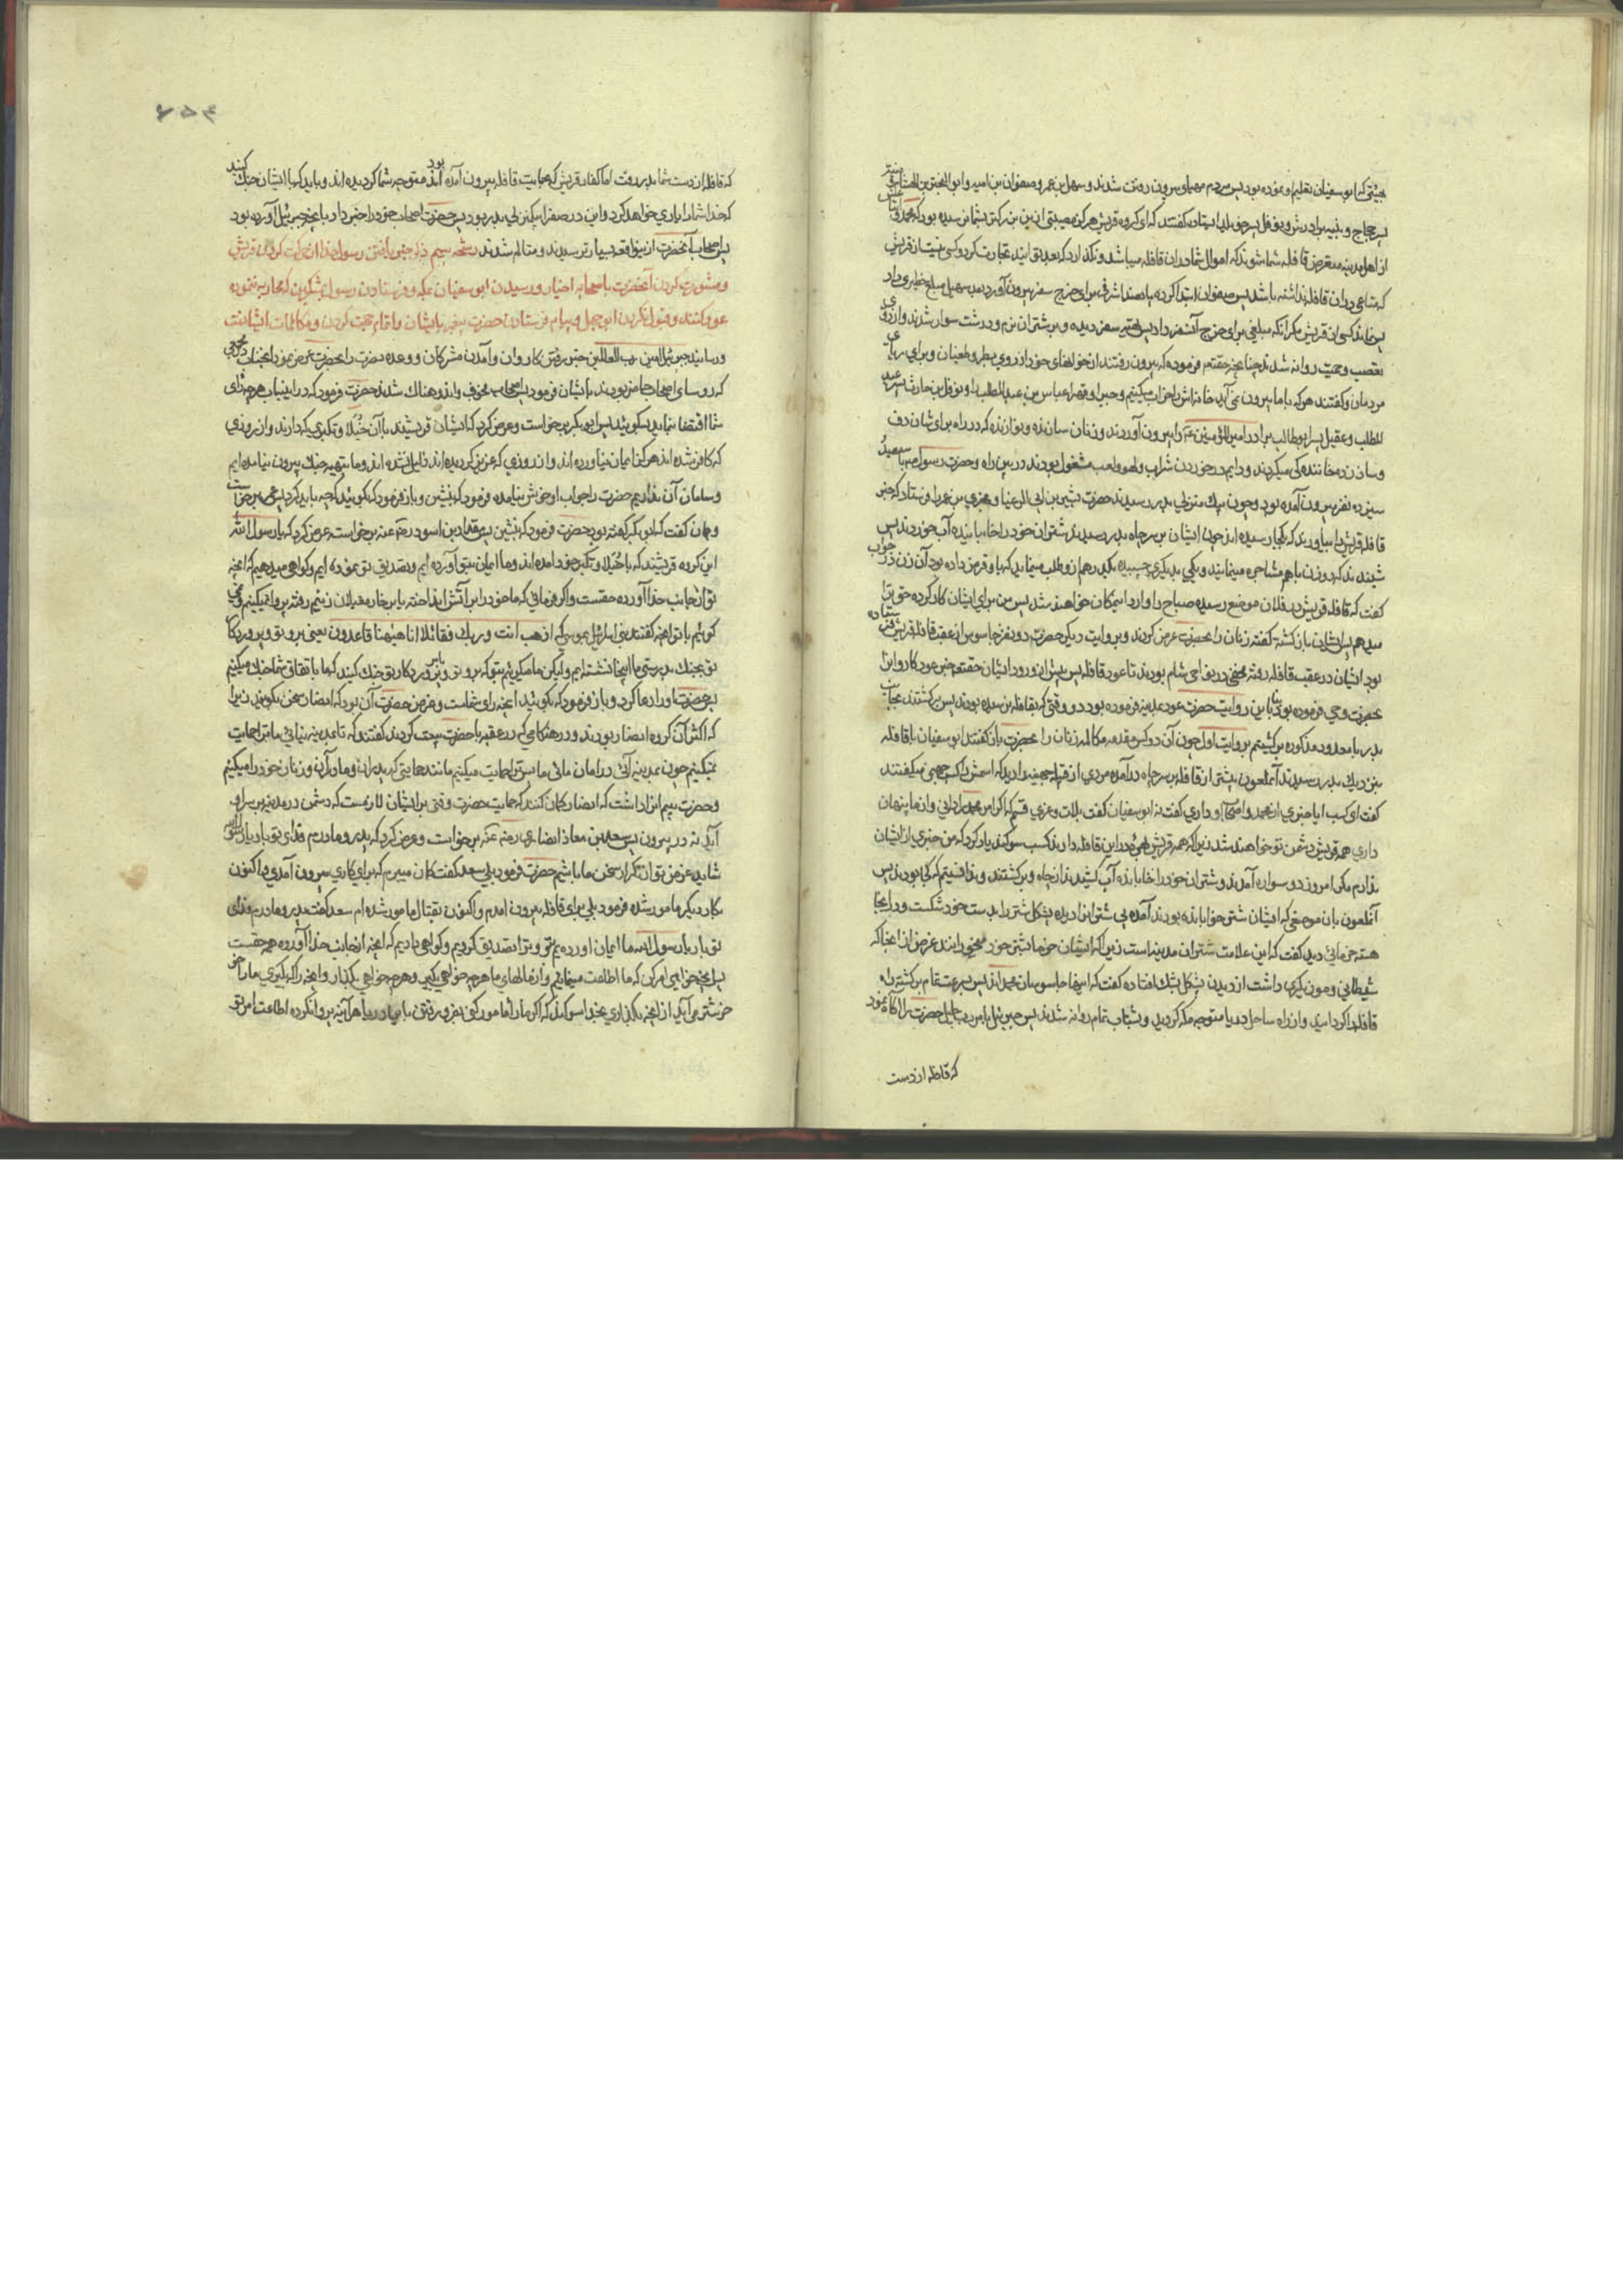 هیئتی که ابو سفیان تعلیم او نموده بود پس مردم مهیاء بیرون رفتن شدند و سهل بن عمر و صفوان بن امیه و ابو البختری بن هشام و منبه
پسر حجاج و نبیه برادرش و نوفل پسر خویلد ایستاده گفتند که ای گروه قریش هرگز مصیبتی ازین بزرگتر بشما نرسیده بود که محمد و
از اهل مدینه متعرض قافله شما شوند که اموال شما در ان قافله میباشد و نگذارد که بعد بتوانید تجارت کرد و کسی نیست از قریش
که متاعی در ان قافله نداشته باشد پس صفوان ابتدا کرده پانصد اشرفی برای خرج سفر بیرون آورد بعد سهیل مبلغ خطیری داد
پس نماند کسی از قریش مگر انکه مبلغی برای خرج آن سفر داد پس تهیه سفر دیده و بر شتران نرم و درشت سوار شدند و از روی
تعصب و حمیت روانه شدند چنانچه حقتعم فرموده که بیرون رفتند از خوانهای خود از روی بطر و طغیان و برای ریای
مردمان و گفتند هر که با ما بیرون نمی آید خانه اش را خراب میکنیم و جبرا و قهرا عباس بن عبد المطلب را و نوفل بن حارث پسر عبد
المطلب و عقیل پسر ابو طالب برادر امیر المؤمنین ع را بیرون آوردند و زنان سازنده و نوازنده که در راه برای شان دف
و ساز زده خانندگی میکردند و دایم در خوردن شراب و لهو و لعب مشغول بودند در بین راه و حضرت رسول ص با سیصد
سیزده نفر بیرون آمده بود و چون بیک منزلی بدر رسیدند حضرت بشیر بن ابی الرعبا و مجدی بن عمر را فرستاد که خبر
قافله قریش را بیاورید که بکجا رسیده اند چون ایشان بر سر چاه بدر رسیدند شتران خود را خابانیده آب خوردند پس
شنیدند که دو زن با هم مشاجره مینمایند و یکی بدیگری چسبیده یکدرهم از و طلب مینماید که باو قرض داده بود آن زن در جواب
گفت که قافله قریش در فلان موضع رسیده صباح را وارد اینمکان خواهند شد پس من برای ایشان کار کرده حق ترا
میدهم پس ایشان باز گشته گفته زنان را بحضرت عرض کردند و بروایت دیگر حضرت دو نفر جاسوس از عقب قافله قریش فرستاده
بود ایشان در عقب قافله رفته مخفی در نواحی شام بودند تا عود قافله پس پیش از ورود ایشان حقتعم خبر عود کاروانرا
بحضرت وحی فرموده بود بنا باین روایت حضرت عود بمدینه فرموده بود در وقتی که بقافله نرسیده بودند پس برگشتند بجانب
بدر با معدود مذکوره برگشیتم بروایت اول چون آن دو کس مقدمه مکالمه زنان را بحضرت باز گفتند ابو سفیان با قافله
بنزدیک بدر رسیدند آنملعون پیشتر از قافله بر سر چاه در آمده مردی از قبیله جهینه را دید که اسمش را کسب جهنی میگفتند
گفت ای کسب ایا خبری از محمد و اصحاب او داری گفت نه ابو سفیان گفت بلات و عزی قسم که اگر امر محمد را دانی و از ما پنهان
داری همه قریش دشمن تو خواهند شد زیرا که همه قریش در این قافله دارند کسب سوگند یاد کرد که من خبری از ایشان
ندارم مگر امروز دو سواره آمدند و شتران خود را خابانده آب کشیدند از چاه و برگشتند و ندانستم که کجا بودند پس
آنلعون بان موضعی که ایشان شتر خوابانده بودند آمده پی شترانرا دیده پشکل شتر را بدست خود شکست و در اینجا
هسته خرمائی دید گفت که این علامت شتران مدینه است زیرا که ایشان خرما بشتر خود میخورانند غرض از انجا که
شیطانی و مون دیگری داشت از دیدن پشکل بشک افتاده گفت که اینها جاسوسان محمد اند پس بسرعت تمام برگشته راه
قافله را گردانید و از راه ساحل دریا متوجه مکه گردید و بشتاب تمام روانه شدند پس جبرئیل بامر رب جلیل حضرت را آگاه نمود
که قافله از دست
۲۵۴
که قافله از دست شما بدر رفت اما کفار قریش که بحمایت قافله بیرون آمده بودند متوجه شما گردیده اند و باید که با ایشان جنگ کنید
که خدا شما را یاری خواهد کرد و این در صفرا یکمنزلی بدر بود پس حضرت اصحاب خود را خبر داد بانچه جبرئیل آورده بود
پس اصحاب آنحضرت ازینواقعه بسیار ترسیدند و متالم شدند رشحه سیم ذکر خبر یافتن رسول خدا از حرکت کردن قریش
و مشورت کردن آنحضرت با صحابه اخیار و رسیدن ابو سفیان بمکه و فرستادن رسول بمشرکین که محاربه ننموده
عود کنند و قبول نکردن ابو جهل و پیام فرستادن حضرت پیغمبر بایشان و اتمام حجت کردن و مکالمات ایشانست
و رسانید جبرئیل امین رب العالمین خبر رفتن کاروان و آمدن مشرکان و وعده نصرت را بحضرت عرض نمود انجناب
که روسای اصحاب حاضر بودند بایشان فرمود پس اصحاب مخوف و اندوهناک شدند حضرت فرمود که در اینباب هر چه رای
شما اقتضا نماید بگویئید پس ابو بکر برخواست و عرض کرد که ایشان قریشند با آن خیلا و تکبری که دارند و از روزی
که کافر شده اند هرگز ایمان نیاورده اند و از روزی که عزیز گردیده اند ذلیل نشده اند و ما بتهیه جنگ بیرون نیامده ایم
و سامان آن نداریم حضرت را جواب او خوش نیامده فرمود که بنشین و باز فرمود که بگوئید که چه باید کرد پس عمر برخواست
و همان گفت که ابو بکر گفته بود حضرت فرمود که بنشین پس مقداد بن اسود رضی عنه برخواسته عرض کرد که یا رسول الله
این گروه قریشند که با خیلا و تکبر خود آمده اند و ما ایمان بتو آورده ایم و تصدیق تو نموده ایم و گواهی میدهیم که انچه
تو از جانب خدا آورده حقست و اگر فرمائی که ما خود را بر آتش انداخته یا بر خار مغیلان زنیم رفته پروا نمیکنیم و نمی
گوئیم با تو انچه گفتند بنی اسرائیل بموسی که اذهب انت و ربک فقاتلا انا هیهنا قاعدون یعنی برو تو و پروردگار
تو بجنگ بدرستی ما اینجا نشسته ایم ولیکن ما میگوئیم بتو که برو تو و پروردگار تو جنگ کنید که ما باتفاق شما جنگ میکنیم
پس حضرت او را دعا کرد و باز فرمود که بگوئید انچه رای شماست و غرض حضرت آن بود که انصار سخن بگویند زیرا
که اکثر آن گروه انصار بودند و در هنگامی که در عقبه با حضرت بیعت کردند گفتند که تا بمدینه نیائی ما ترا حمایت
نمیکنیم چون بمدینه آئی در امان مائی ما پس ترا حمایت میکنیم مانند حمایتی که پدران و مادران و زنان خود را میکنیم
و حضرت بیم انرا داشت که انصار گمان کنند که حمایت حضرت وقتی بر ایشان لازمست که دشمن در مدینه بر سر او
آید نه در بیرون پس سعد بن معاذ انصاری رضی عنه برخواست و عرض کرد که پدر و مادرم فدای تو باد یا رسول الله
شاید غرض تو از تکرار سخن ما باشیم حضرت فرمود بلی سعد گفت گمان میبرم که برای کاری بیرون آمدی و اکنون
بکار دیگر مامور شده فرمود بلی برای قافله بیرون امدم و اکنون بقتال مامور شده ام سعد گفت پدر و مادرم فدای
تو باد یا رسول الله ما ایمان اورده بم تو و ترا تصدیق کردیم و گواهی دادیم که انچه از جانب خدا آورده همه حقست
پس انچه خواهی امر کن که ما اطاعت مینمائیم و از مالهای ما هر چه خواهی بگیر و هر چه خواهی بگذار و انچه را که بگیری ما را خو
خوشتر می آید از انچه بگذاری بخدا سوگند که اگر ما را مامور کنی بفرو رفتن بابهای دریا هر آینه پروا نکرده اطاعت امر تو